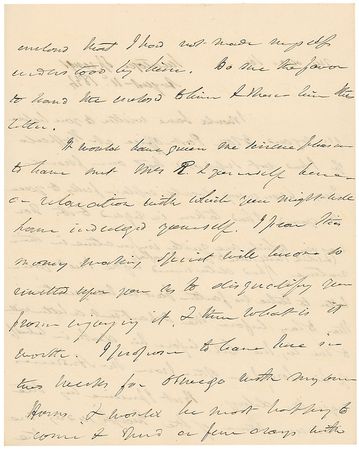 enclosed that I had not made myself
understood by him. Do me the favor
to hand the enclosed to him & show him the
letter.
It would have given me sincere pleasure
to have met Mrs R & yourself here
a relaxation with which you might well
have indulged yourself. I fear this
money making spirit will become so
rivited upon you as to disqualify you
from enjoying it, & then what is it
worth. I propose to leave here in
two weeks for Oswego with my own
Horses, & would be most happy to
come & spend a few days with